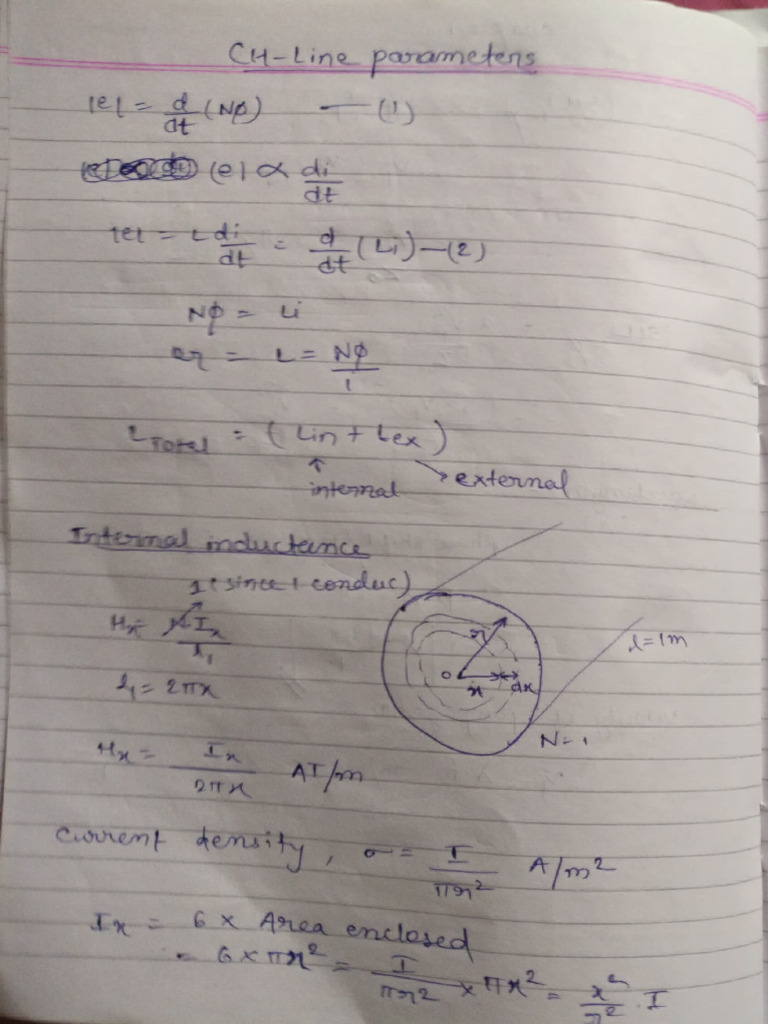 CH-Line parameters
|e| = d/dt (Nϕ) — (1)
|e| ∝ di/dt
|e| = L di/dt = d/dt (Li) — (2)
Nϕ = Li
or = L = Nϕ/i
L Total = (Lin + Lex)
↑ internal → external
Internal inductance
1 (since 1 conduc)
Hx = N Ix / l₁
l₁ = 2πx
r
o x dx
l = 1m
N = 1
Hx = Ix / 2πx AT/m
Current density, σ = I / πr² A/m²
Ix = σ × Area enclosed
= σ × πx² = I / πr² × πx² = x²/r² . I